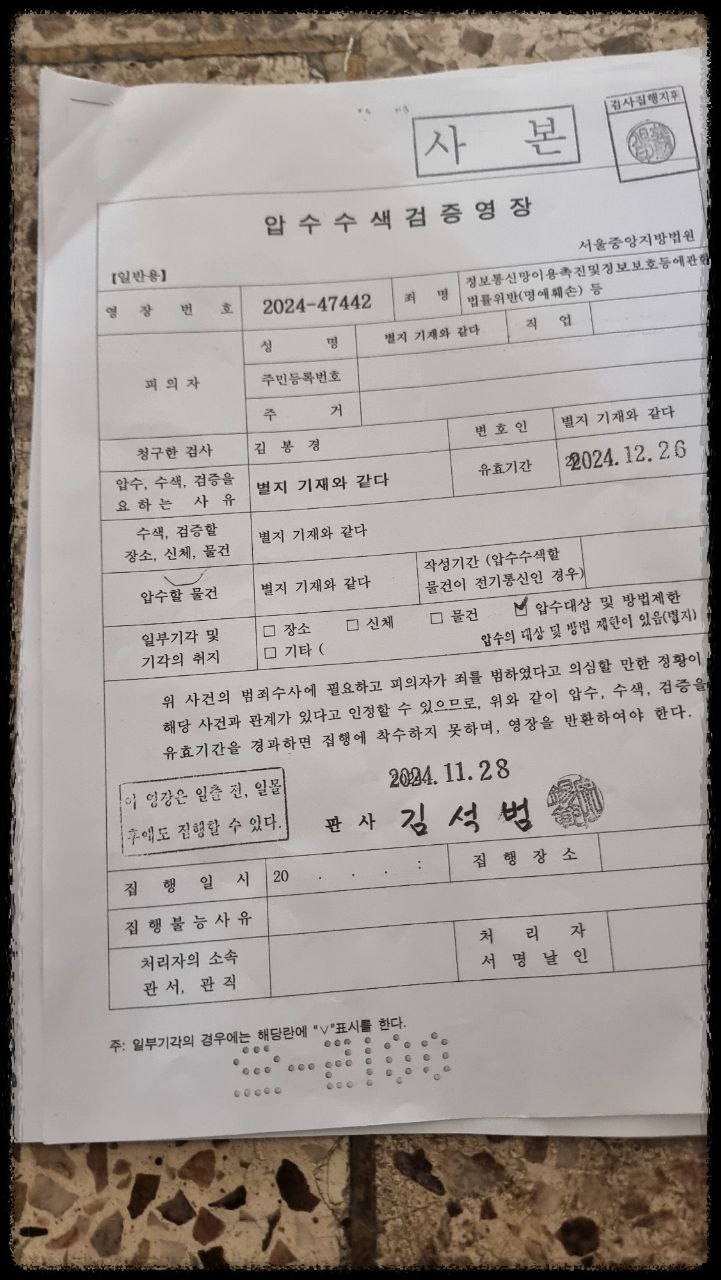 사 본
검사집행지휘
압수수색검증영장
서울중앙지방법원
【일반용】
영 장 번 호
2024-47442
죄 명
정보통신망이용촉진및정보보호등에관한
법률위반(명예훼손) 등
피 의 자
성 명
별지 기재와 같다
직 업
주민등록번호
주 거
청구한 검사
김 봉 경
변 호 인
별지 기재와 같다
압수, 수색, 검증을
요 하 는 사 유
별지 기재와 같다
유효기간
2024.12.26
수색, 검증할
장소, 신체, 물건
별지 기재와 같다
압수할 물건
별지 기재와 같다
작성기간 (압수수색할
물건이 전기통신인 경우)
일부기각 및
기각의 취지
□ 장소 □ 신체 □ 물건 ☑ 압수대상 및 방법제한
□ 기타 (
압수의 대상 및 방법 제한이 있음(별지)
위 사건의 범죄수사에 필요하고 피의자가 죄를 범하였다고 의심할 만한 정황이
해당 사건과 관계가 있다고 인정할 수 있으므로, 위와 같이 압수, 수색, 검증을
유효기간을 경과하면 집행에 착수하지 못하며, 영장을 반환하여야 한다.
2024.11.28
이 영장은 일출 전, 일몰
후에도 집행할 수 있다.
판 사 김 석 범
집 행 일 시
20 . . . :
집 행 장 소
집 행 불 능 사 유
처리자의 소속
관 서, 관 직
처 리 자
서 명 날 인
주: 일부기각의 경우에는 해당란에 "∨"표시를 한다.